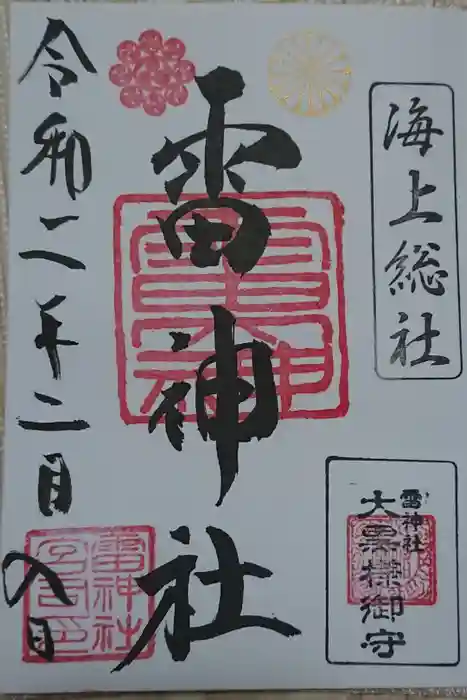 海上総社
雷神社
令和二年二月入日
雷神社
大黒様御守
雷神社
雷神社
宮司之印